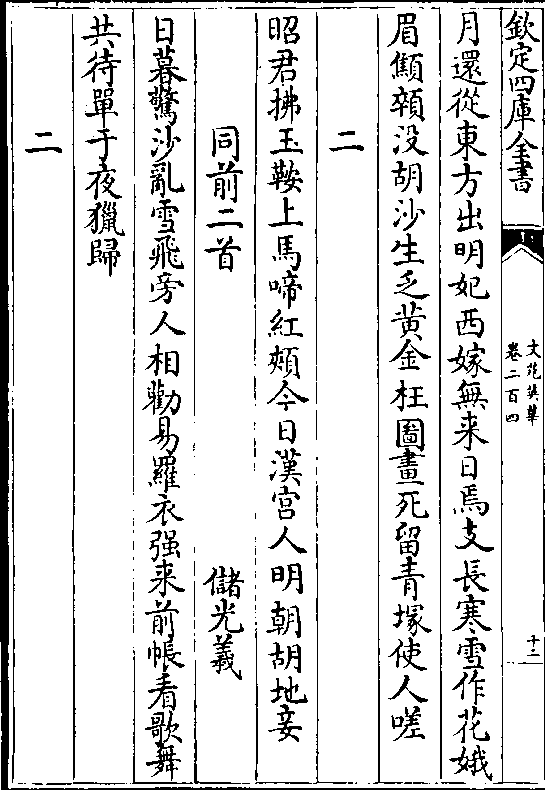 欽定四庫全書
文苑英華
卷二百四
十二
月還從東方出明妃西嫁無来日焉支長寒雪作花娥
眉顦顇没胡沙生乏黄金枉圖畫死留青塚使人嗟
二
昭君拂玉鞍上馬啼紅頰今日漢宫人明朝胡地妾
同前二首 儲光義
日暮驚沙亂雪飛旁人相勸易羅衣强来前帳看歌舞
共待單于夜獵歸
二